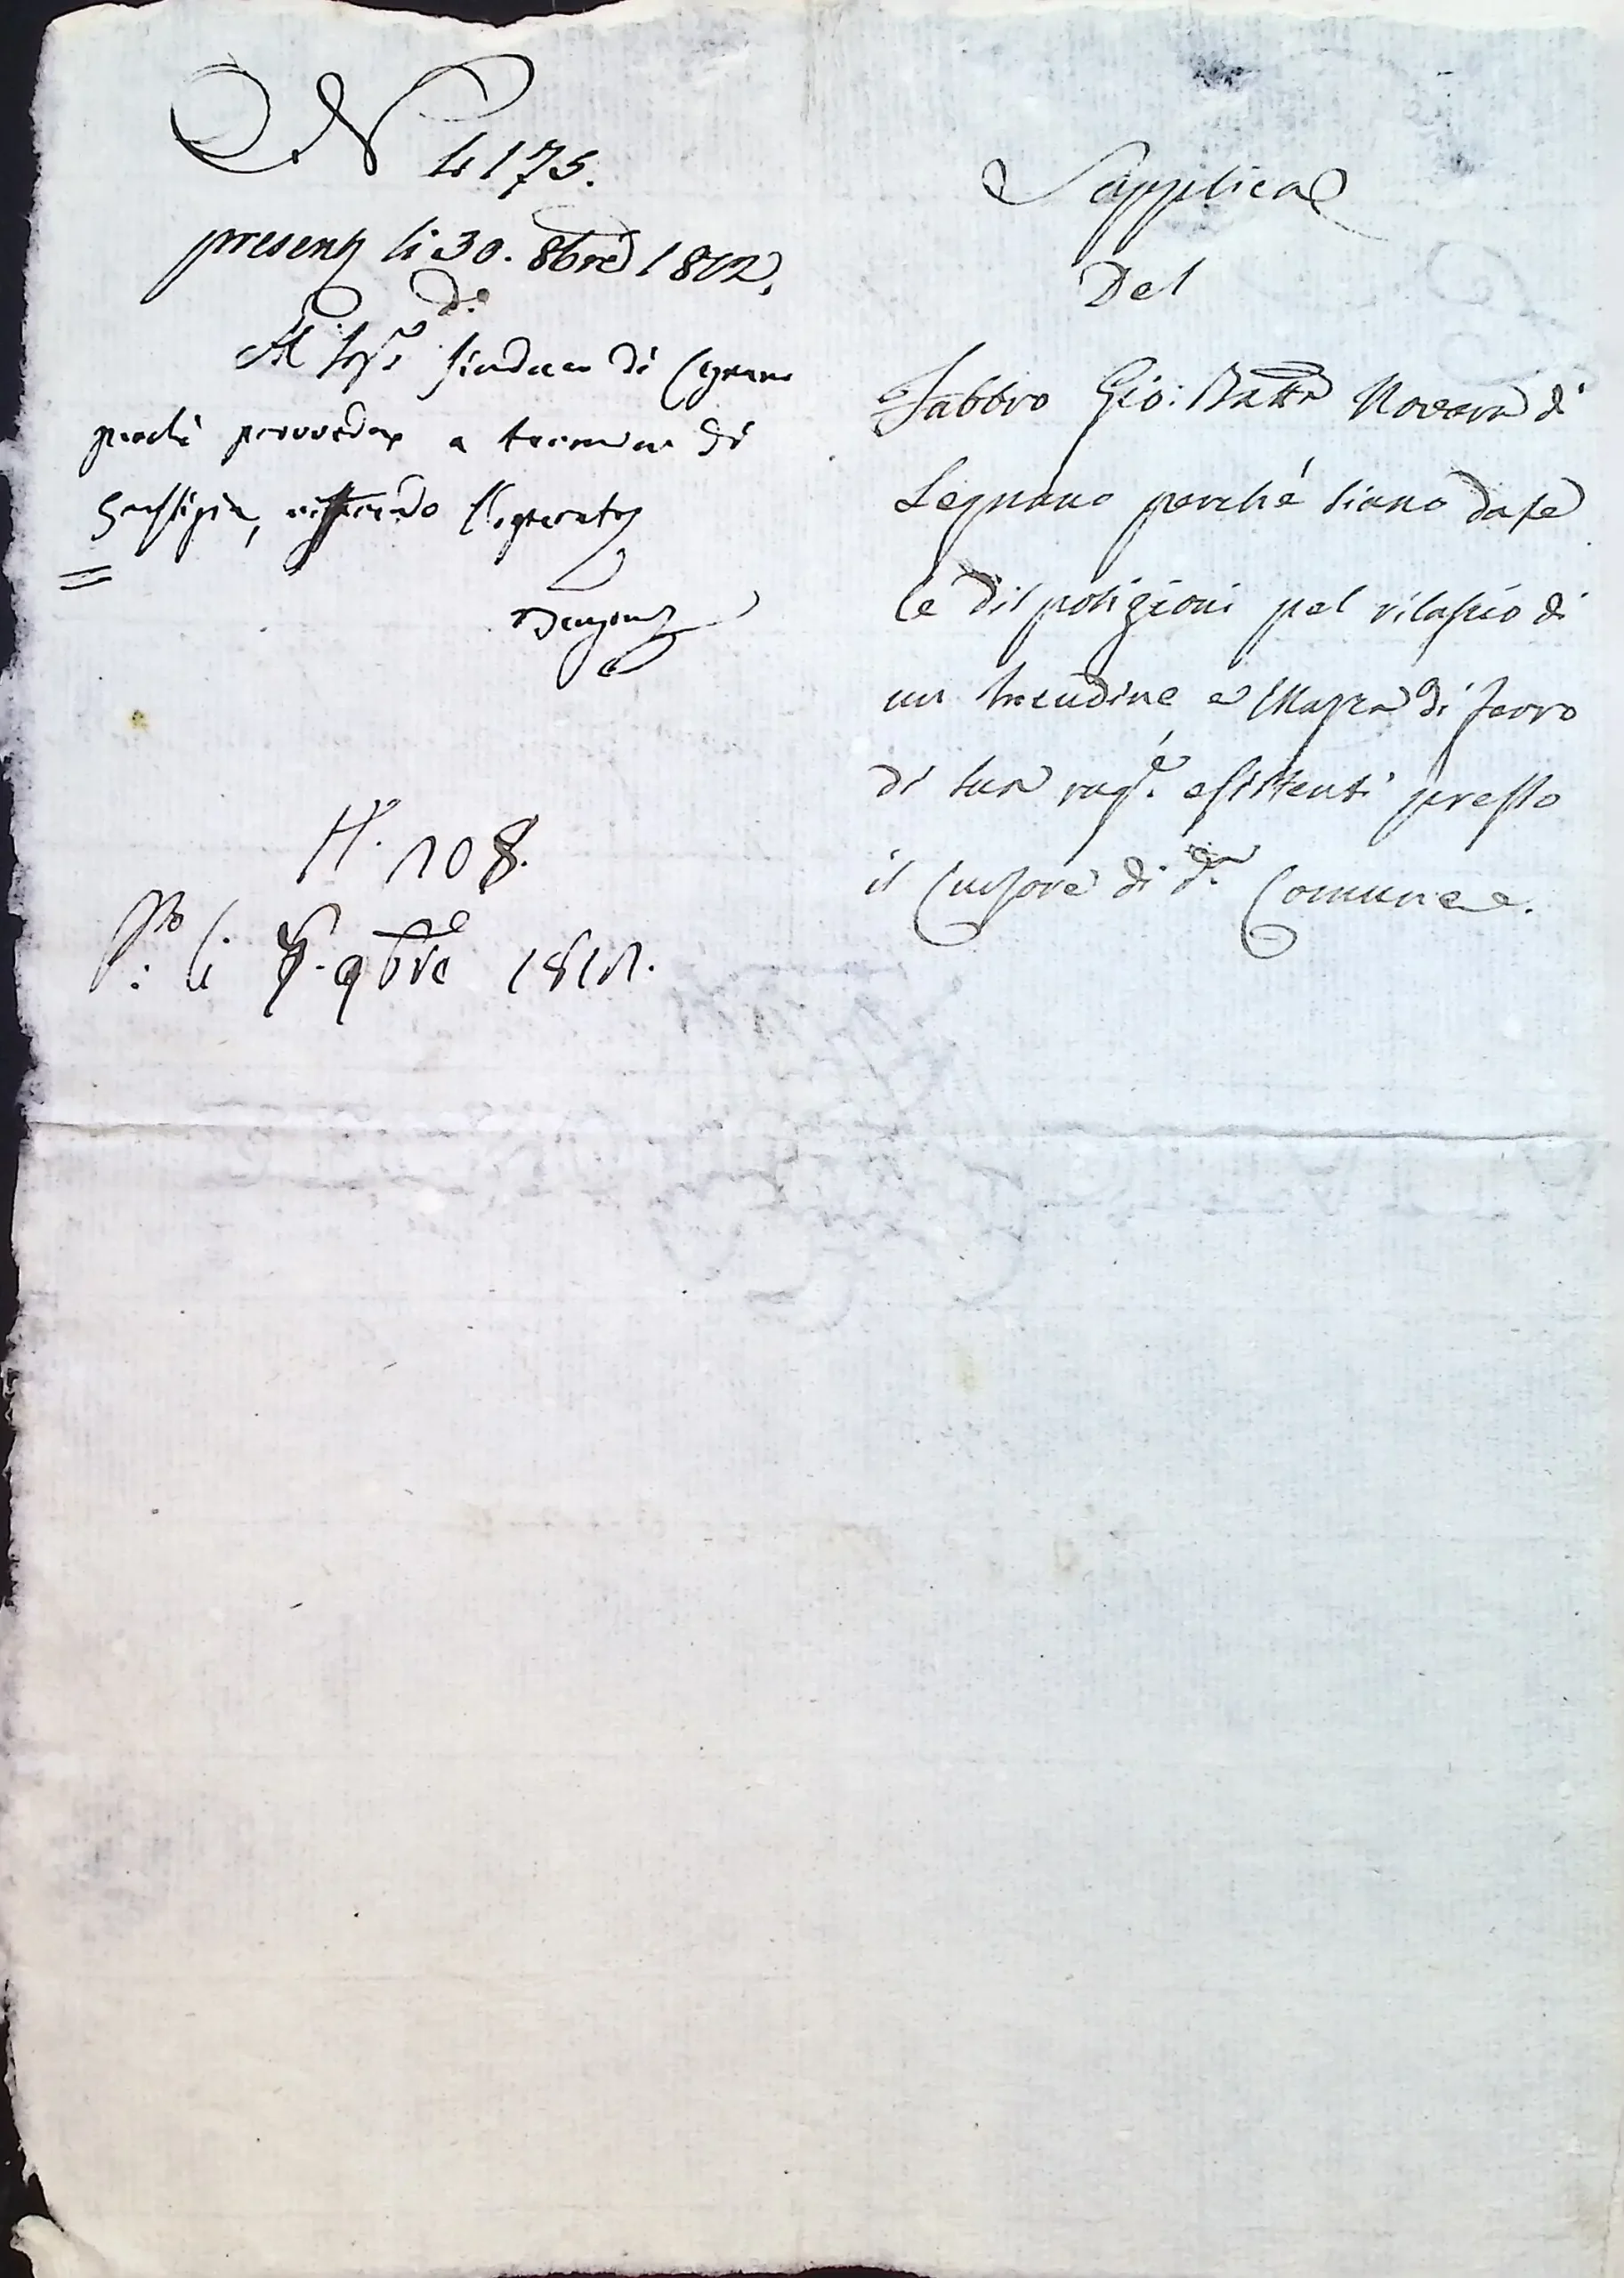 N 4175.
present li 30. 8bre 1812.
d.
Al Sigr Sindaco di Legnano
perché provveda a termini di
Giustizia, riferendo l'operato
N. 108.
P.to li 8. 9bre 1812.
Supplica
Del
Fabbro Gio: Batta Novara di
Legnano perché siano date
le disposizioni pel rilascio di
un Incudine e Mazza di ferro
di sua rag.e esistenti presso
il Cursore di d.a Comune.